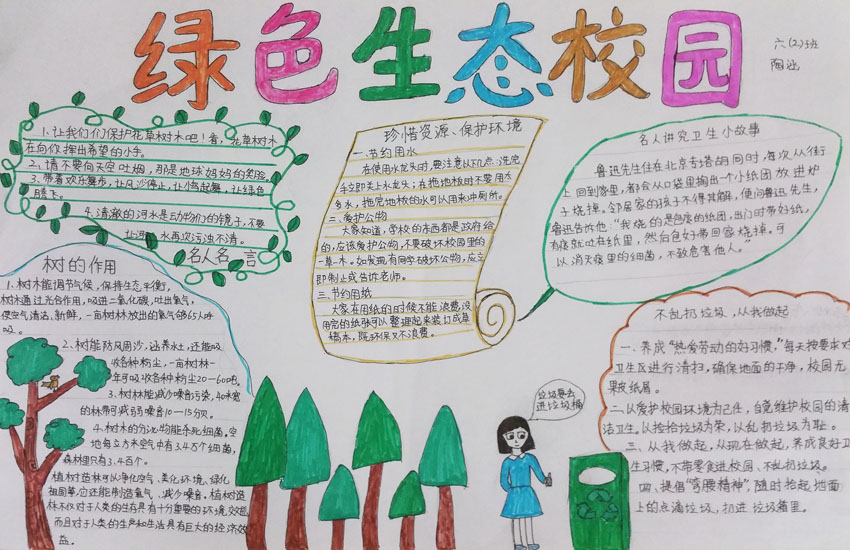 绿色生态校园
六(2)班
陶
1.让我们们保护花草树木吧!看,花草树木
在向你挥出希望的小手。
2.请不要向天空吐烟,那是地球妈妈的笑脸。
3.带着欢乐舞步,让风沙停止,让小鸟起舞,让绿色
腾飞。
4.清澈的河水是动物们的镜子,不要
让河水再次污浊不清。
名人名言
珍惜资源、保护环境
一.节约用水
在使用水龙头时,要注意以下几点:洗完
手立即关上水龙头;在拖地板时不要用太
多水,拖完地板的水可以用来冲厕所。
二.爱护公物
大家知道,学校的东西都是政府给
的,应该爱护公物,不要破坏校园里的
一草一木。如发现有同学破坏公物,应立
即制止或告诉老师。
三.节约用纸
大家在用纸的时候不能浪费,没
用完的纸张可以整理起来装订成草
稿本,既环保又不浪费。
名人讲究卫生小故事
鲁迅先生住在北京专塔胡同时,每次从街
上回到家里,都会从口袋里掏出一个小纸团放进炉
子烧掉。邻居家的孩子不得其解,便问鲁迅先生,
鲁迅告诉他:“我烧的是包痰的纸团,出门时带好纸,
有痰就吐在纸里,然后包好带回家烧掉。可
以消灭痰里的细菌,不致危害他人。”
树的作用
1.树木能调节气候,保持生态平衡,
树木通过光合作用,吸进二氧化碳,吐出氧气,
使空气清洁、新鲜,一亩树林放出的氧气够65人呼
吸。
2.树林能防风固沙,涵养水土,还能吸
收各种粉尘,一亩树林一
年可吸收各种粉尘20—60吨。
3.树林能减少噪音污染,40米宽
的林带可减弱噪音10—15分贝。
4.树木的分泌物能杀死细菌,空
地每立方米空气中有3.4万个细菌,
森林里只有3.4百个。
植树造林可以净化空气、美化环境、绿化
祖国等,它还能制造氧气、减少噪音,植树造
林不仅对于人类的生存是有十分重要的环境效益,
而且对于人类的生产和生活具有巨大的经济效
益。
垃圾要去
进垃圾桶
不乱扔垃圾,从我做起
一、养成“热爱劳动的好习惯,”每天按要求对
卫生区进行清扫,确保地面的干净,校园无
果皮纸屑。
二.以爱护校园环境为己任,自觉维护校园的清
洁卫生。以捡拾垃圾为荣,以乱扔垃圾为耻。
三、从我做起,从现在做起,养成良好卫
生习惯,不带零食进校园、不乱扔垃圾。
四、提倡“弯腰精神”,随时拾起地面
上的点滴垃圾,扔进垃圾箱里。